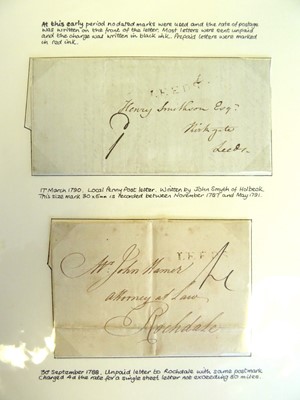 At this early period no dated marks were used and the rate of postage
was written on the front of the letter. Most letters were sent unpaid
and the charge was written in black ink. Prepaid letters were marked
in red ink.
LEEDS
Henry Smithson Esqr
Kirkgate
Leeds
17 March 1790. Local Penny Post letter. Written by John Smyth of Holbeck.
This size mark 30 x 5mm is recorded between November 1787 and May 1791.
LEEDS
Mr John Hamer
Attorney at Law
Rochdale
3rd September 1788. Unpaid letter to Rochdale with same postmark
Charged 4d the rate for a single sheet letter not exceeding 50 miles.